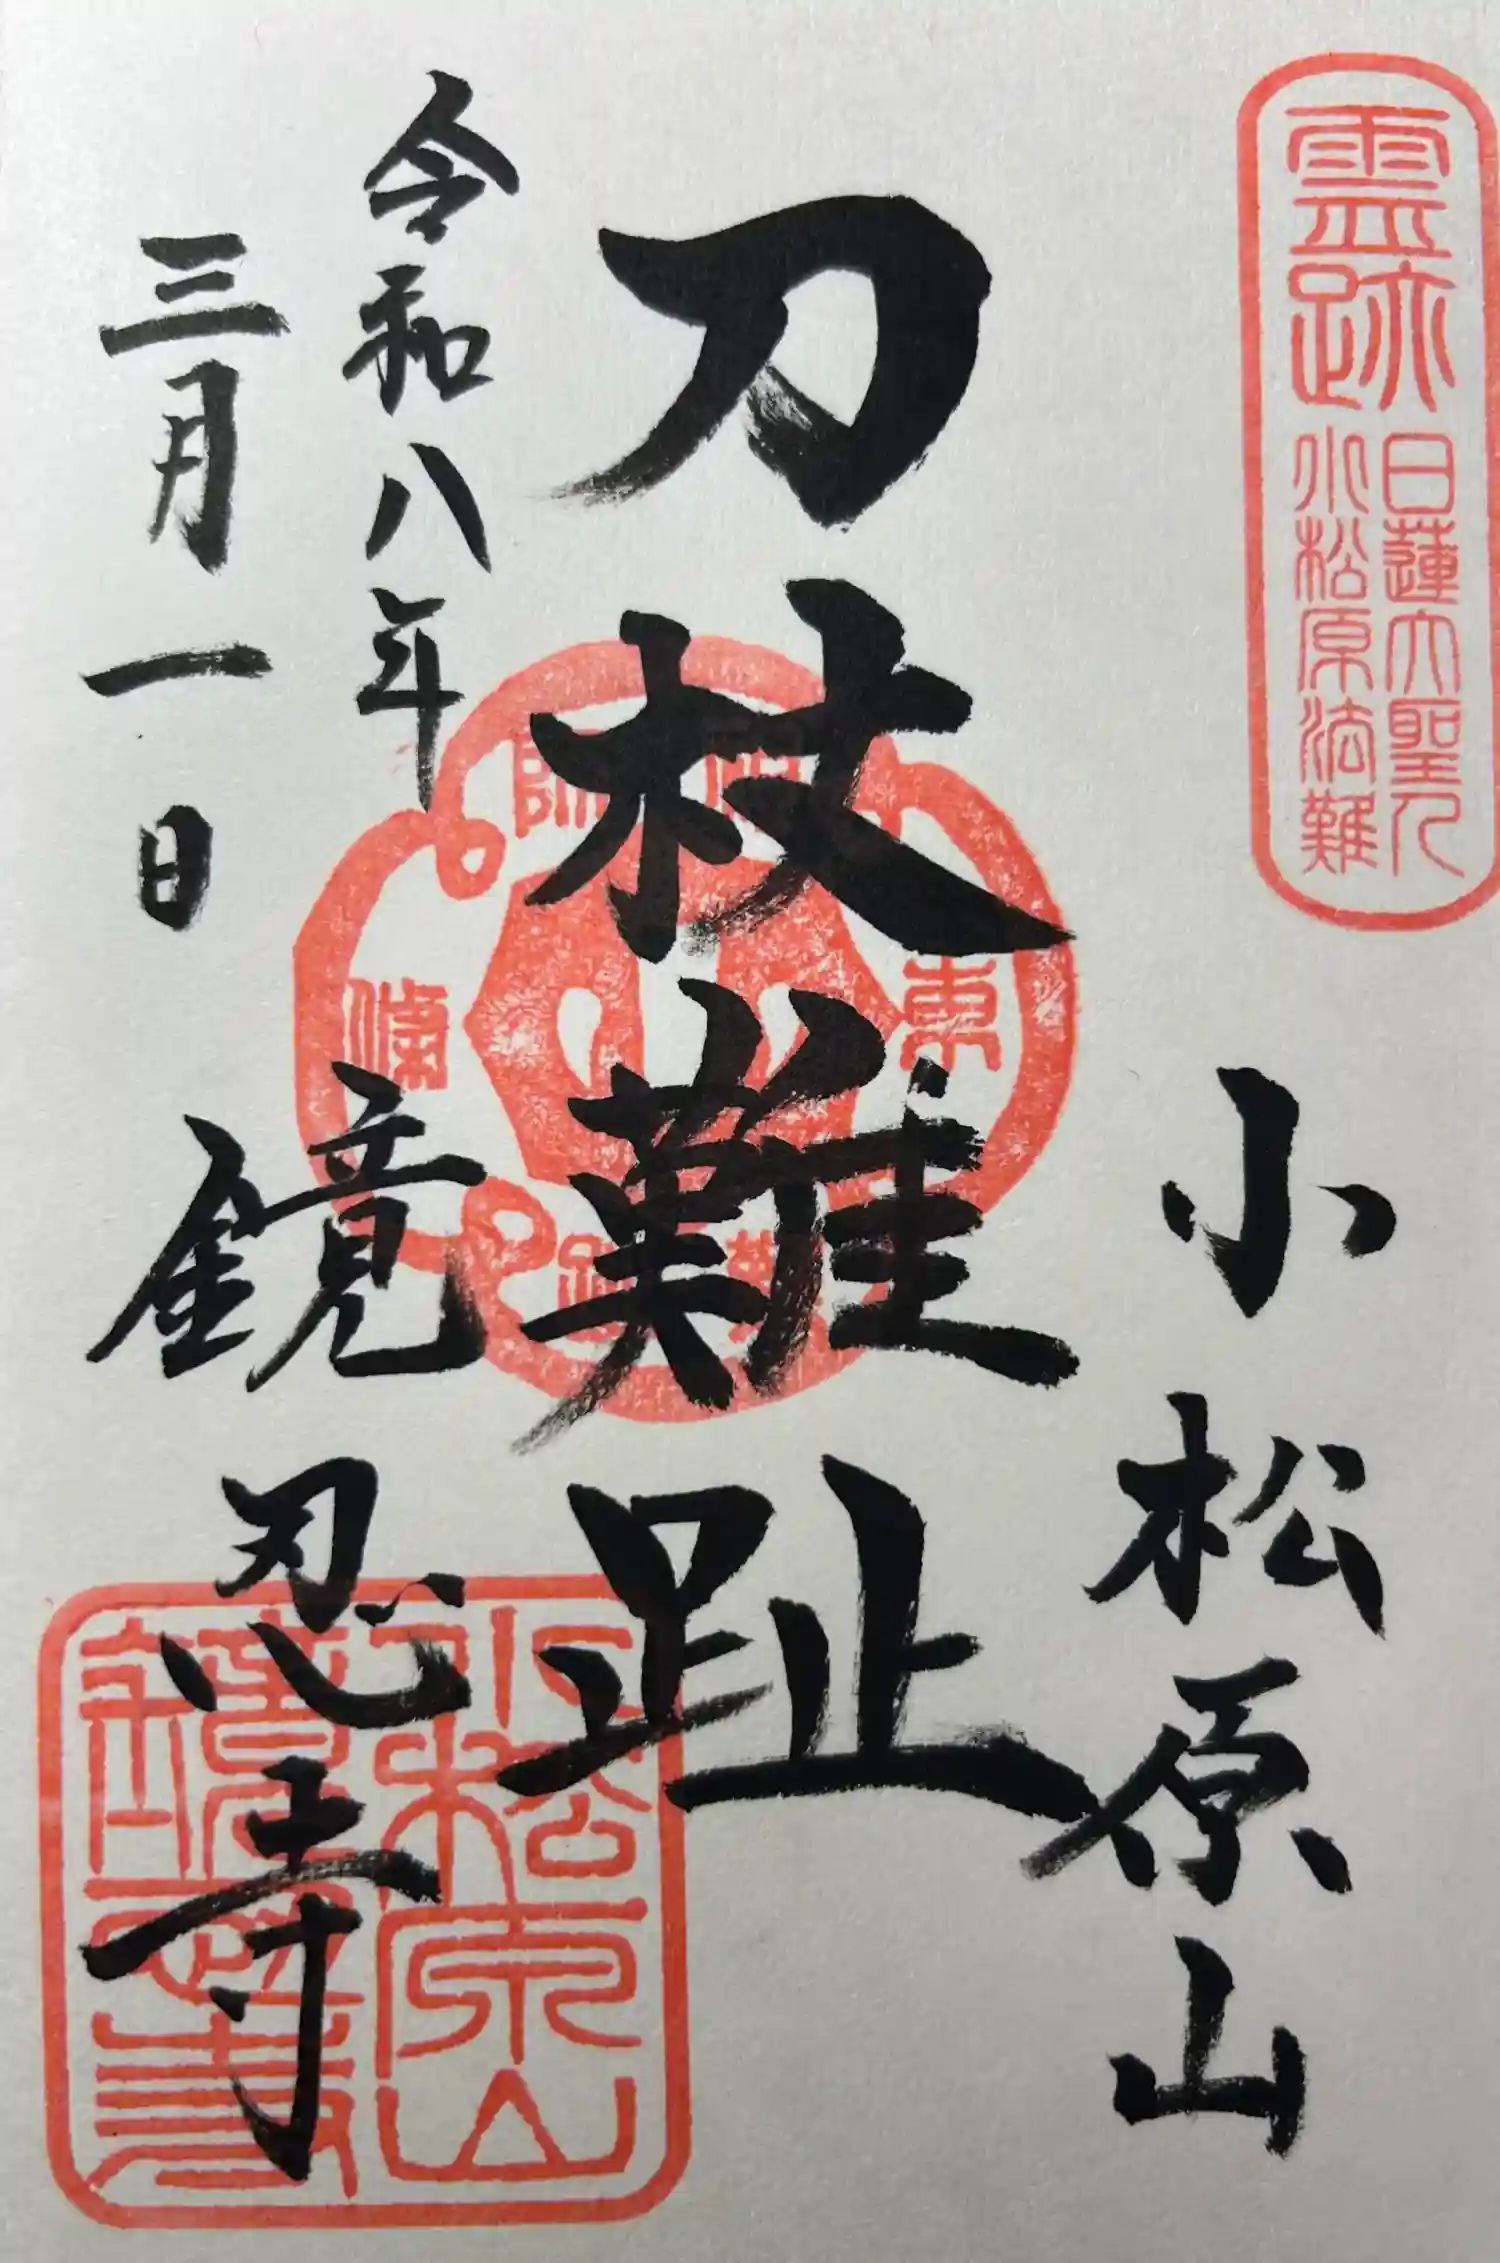 霊跡
日蓮大聖人
小松原法難
小松原山
刀杖難趾
令和八年
三月一日
鏡忍寺
東
條
松原山
鏡忍寺